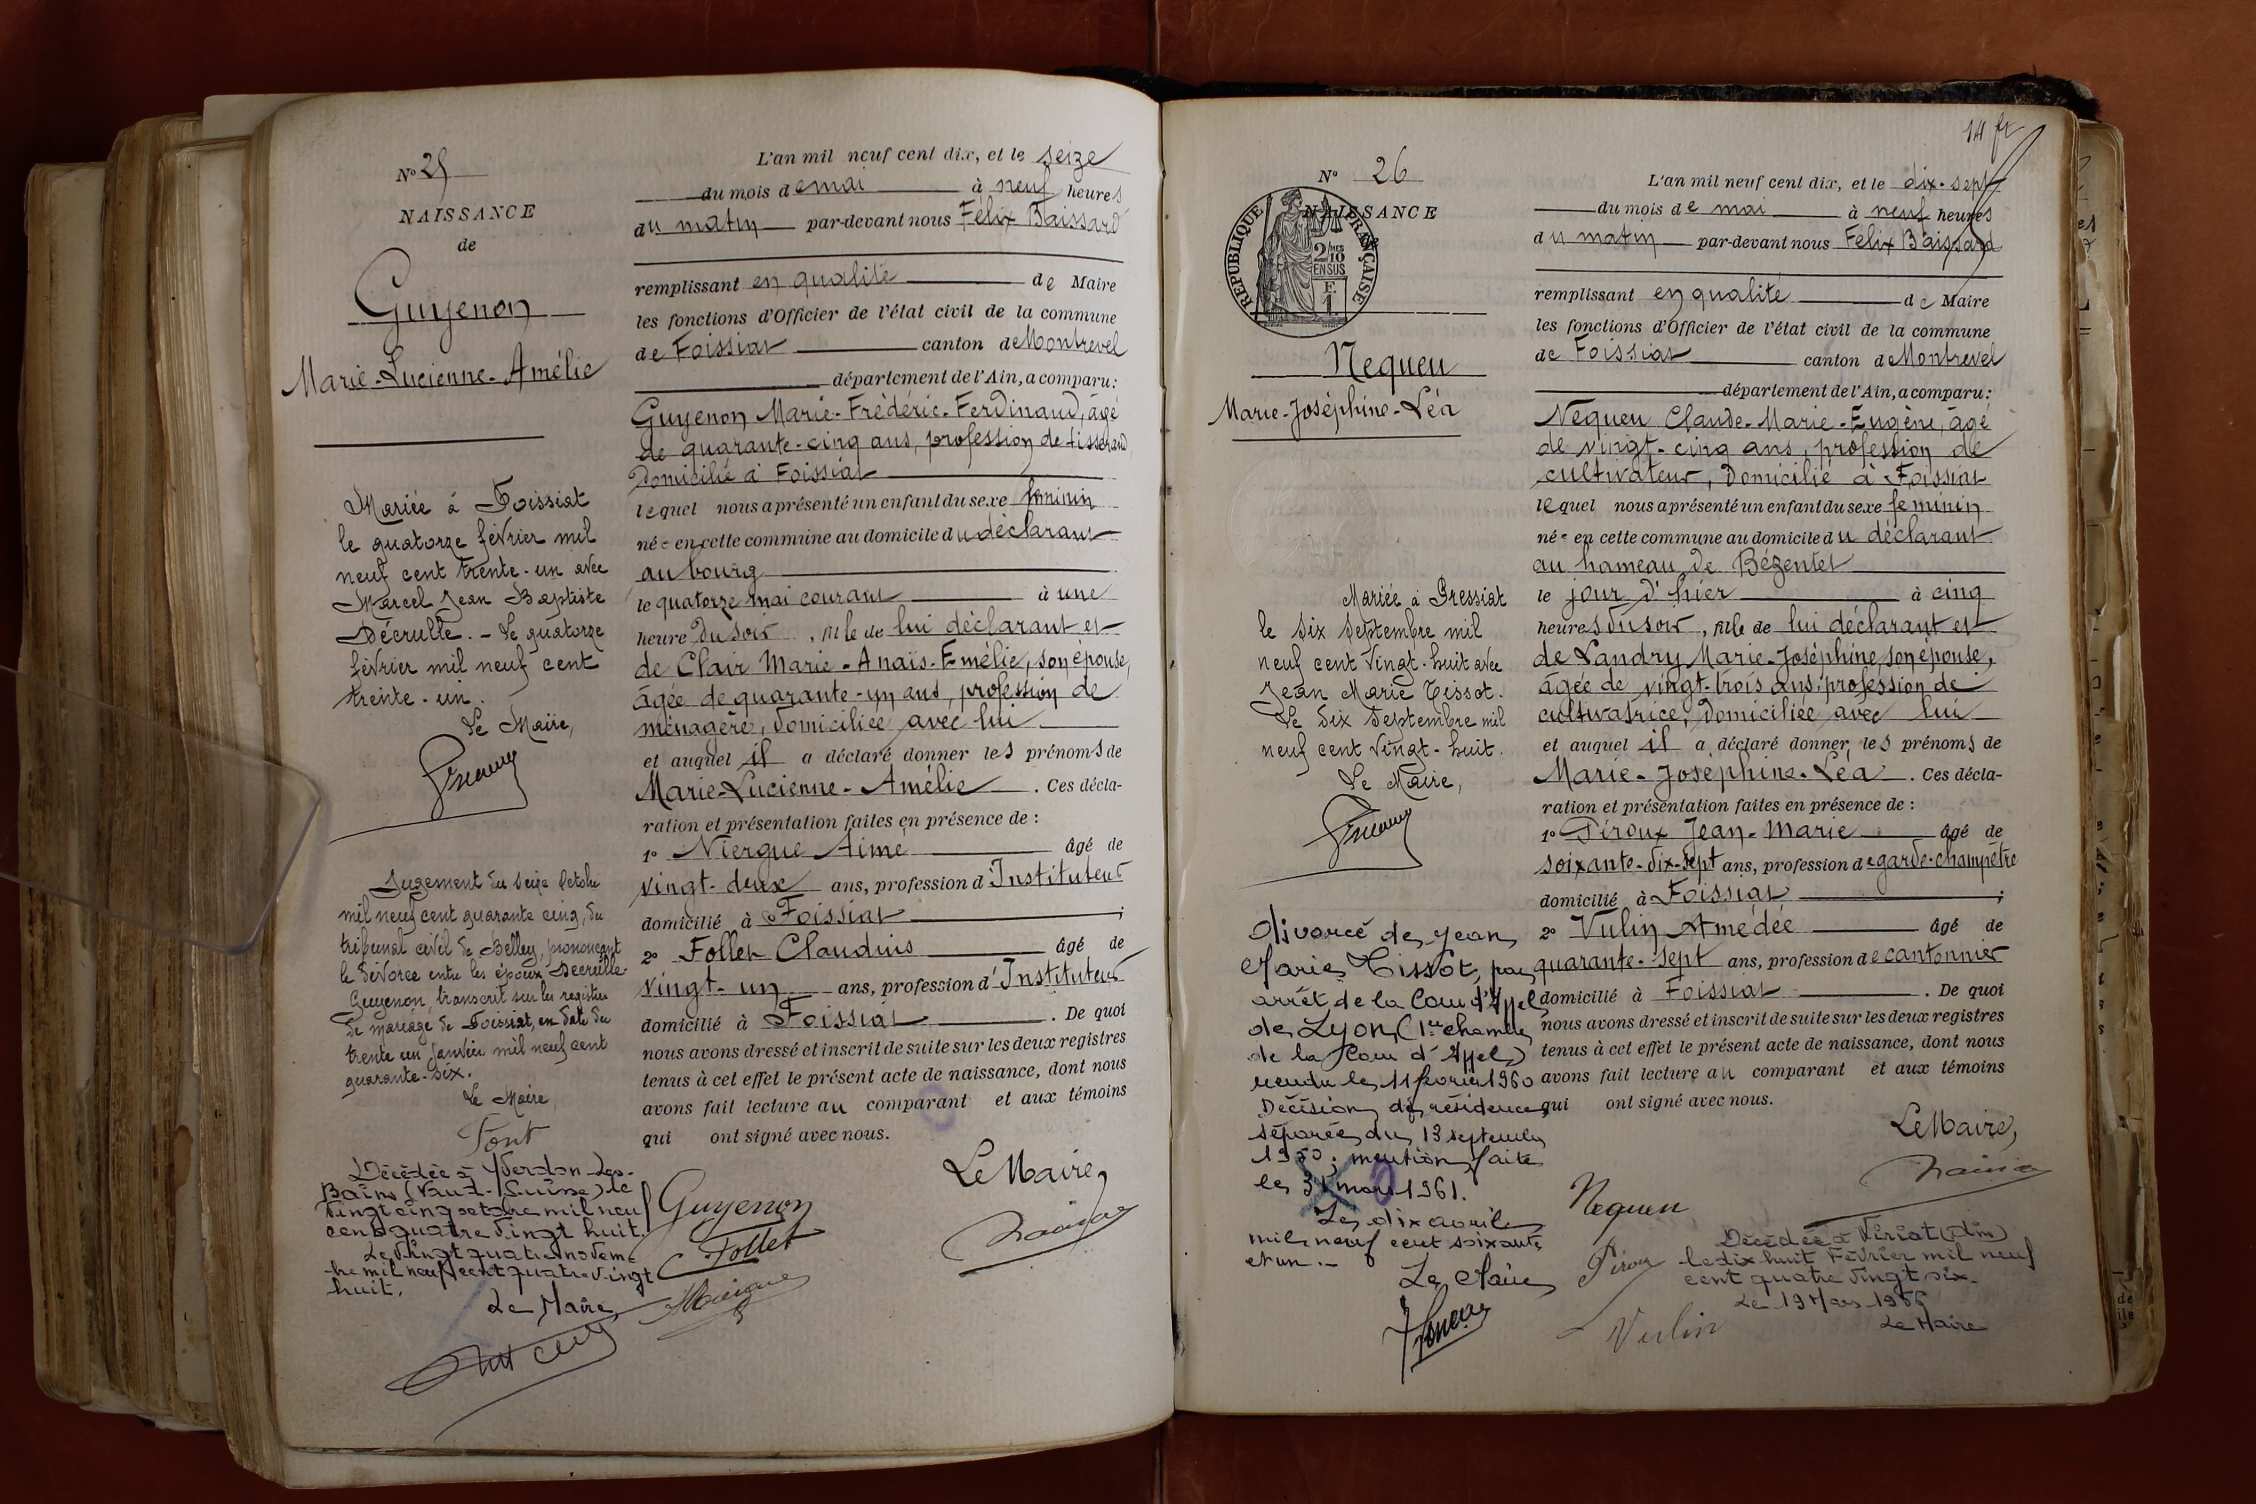 Nº 25
NAISSANCE
de
Guyenon
Marie-Lucienne-Amélie
Mariée à Foissiat
le quatorze février mil
neuf cent trente-un avec
Marcel Jean Baptiste
Décrulle. - Le quatorze
février mil neuf cent
trente-un.
Le Maire,
Jugement du seize octobre
mil neuf cent quarante cinq, du
tribunal civil de Belley, prononçant
le divorce entre les époux Decrulle-
Guyenon, transcrit sur les registres
de mariage de Foissiat, en date du
trente un janvier mil neuf cent
quarante-six.
Le Maire
Font
Décédée à Yverdon-les-
Bains (Vaud-Suisse) le
vingt cinq octobre mil neuf
cent quatre vingt huit.
Le vingt quatre novem-
bre mil neuf cent quatre vingt
huit.
Le Maire
L'an mil neuf cent dix, et le seize
du mois de mai à neuf heures
du matin par-devant nous Félix Baissard
remplissant en qualité de Maire
les fonctions d'Officier de l'état civil de la commune
de Foissiat canton de Montrevel
département de l'Ain, a comparu:
Guyenon Marie-Frédéric-Ferdinand, âgé
de quarante-cinq ans, profession de tisserand
domicilié à Foissiat
lequel nous a présenté un enfant du sexe féminin
née en cette commune au domicile du déclarant
au bourg
le quatorze mai courant à une
heure du soir, fille de lui déclarant et
de Clair Marie-Anaïs-Emélie, son épouse,
âgée de quarante-un ans, profession de
ménagère, domiciliée avec lui
et auquel il a déclaré donner les prénoms de
Marie-Lucienne-Amélie. Ces décla-
ration et présentation faites en présence de :
1º Niergue Aimé âgé de
vingt-deux ans, profession d'Instituteur
domicilié à Foissiat ;
2º Follet Claudius âgé de
vingt-un ans, profession d'Instituteur
domicilié à Foissiat. De quoi
nous avons dressé et inscrit de suite sur les deux registres
tenus à cet effet le présent acte de naissance, dont nous
avons fait lecture au comparant et aux témoins
qui ont signé avec nous.
Le Maire,
Guyenon
Follet
14 ft
Nº 26
NAISSANCE
RÉPUBLIQUE FRANÇAISE
2/10
EN SUS
F.
1
Nequeu
Marie-Joséphine-Léa
Mariée à Bressiat
le six septembre mil
neuf cent vingt-huit avec
Jean Marie Tissot.
Le dix septembre mil
neuf cent vingt-huit.
Le Maire,
divorcé de Jean
Marie Tissot, par
arrêt de la Cour d'Appel
de Lyon (1re chambre
de la Cour d'Appel)
rendu le 11 février 1960
Décision de résidence
séparée du 13 septembre
1950; mention faite
le 31 mars 1961.
Le dix avril
mil neuf cent soixante
et un.-
Le Maire
L'an mil neuf cent dix, et le dix-sept
du mois de mai à neuf heures
du matin par-devant nous Félix Baissard
remplissant en qualité de Maire
les fonctions d'Officier de l'état civil de la commune
de Foissiat canton de Montrevel
département de l'Ain, a comparu:
Nequeu Claude-Marie-Eugène, âgé
de vingt-cinq ans, profession de
cultivateur, domicilié à Foissiat
lequel nous a présenté un enfant du sexe féminin
née en cette commune au domicile du déclarant
au hameau de Bézentet
le jour d'hier à cinq
heures du soir, fille de lui déclarant et
de Landry Marie-Joséphine, son épouse,
âgée de vingt-trois ans, profession de
cultivatrice, domiciliée avec lui
et auquel il a déclaré donner les prénoms de
Marie-Joséphine-Léa. Ces décla-
ration et présentation faites en présence de :
1º Piroux Jean-Marie âgé de
soixante-dix-sept ans, profession de garde-champêtre
domicilié à Foissiat ;
2º Vulin Amédée âgé de
quarante-sept ans, profession de cantonnier
domicilié à Foissiat. De quoi
nous avons dressé et inscrit de suite sur les deux registres
tenus à cet effet le présent acte de naissance, dont nous
avons fait lecture au comparant et aux témoins
qui ont signé avec nous.
Le Maire,
Nequeu
Piroux
Vulin
Décédée à Viriat (Ain)
le dix huit Février mil neuf
cent quatre vingt six.
Le 19 Mars 1986
Le Maire